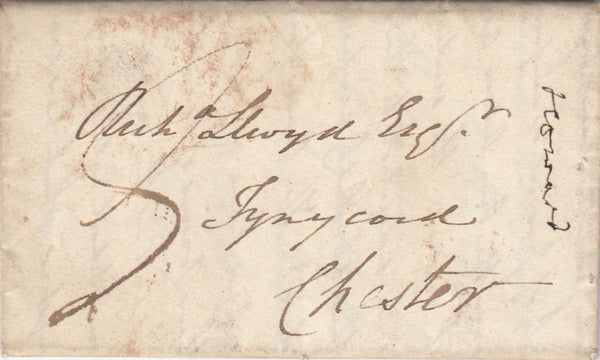 Rich^d Llwyd Esq^r.
Tynycoed
Chester
Howard